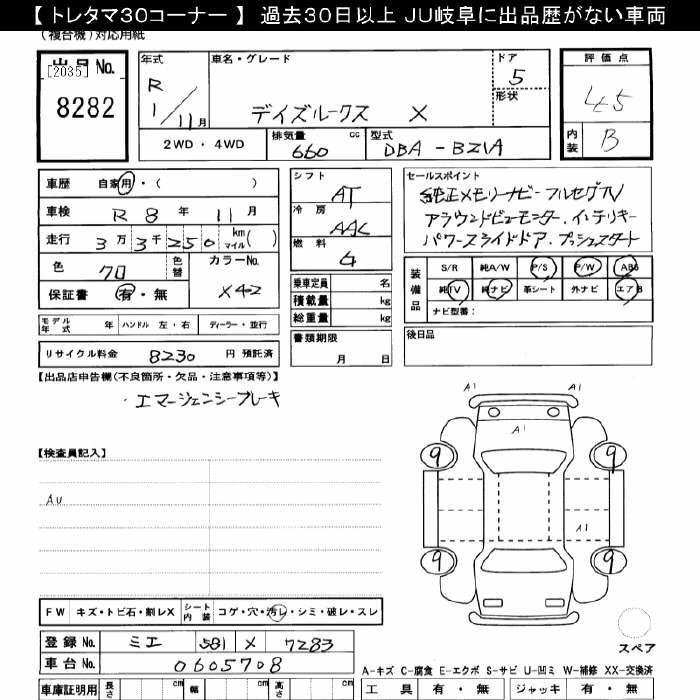 【 トレタマ30コーナー 】 過去30日以上 JU岐阜に出品歴がない車両
(複合機)対応用紙
出品 No.
[2035]
8282
年式
R
1/11月
車名・グレード
デイズルークス X
ドア
5
形状
2WD・4WD
排気量 cc
660
型式
DBA - B21A
評価点
4.5
内装
B
車歴 自家用・( )
車検 R 8 年 11 月
走行 3万 3千 250 km マイル( )
色 色替 カラーNo.
クロ X42
保証書 有・無
シフト
AT
冷房
AAC
燃料
G
乗車定員 名
積載量 kg
総重量 kg
セールスポイント
純正メモリーナビ フルセグTV
アラウンドビューモニター、インテリキー
パワースライドドア、プッシュスタート
装備品
S/R 純A/W P/S P/W ABS
純TV 純ナビ 革シート 外ナビ エアB
ナビ型番:
モデル年式 年 ハンドル 左・右 ディーラー・並行
リサイクル料金 8230 円 預託済
書類期限
月 日
後日品
【出品店申告欄(不良箇所・欠品・注意事項等)】
・エマージェンシーブレーキ
【検査員記入】
AU
A1 A1
A1
9 9
A1
9 9
スペア
FW キズ・トビ石・割レX シート内装 コゲ・穴・汚レ・シミ・破レ・スレ
登録 No. ミエ 581 X 7283
車台 No. 0605708
A-キズ C-腐食 E-エクボ S-サビ U-凹ミ W-補修 XX-交換済
車庫証明用 長さ cm 幅 cm 高さ cm
工具 有・無 ジャッキ 有・無